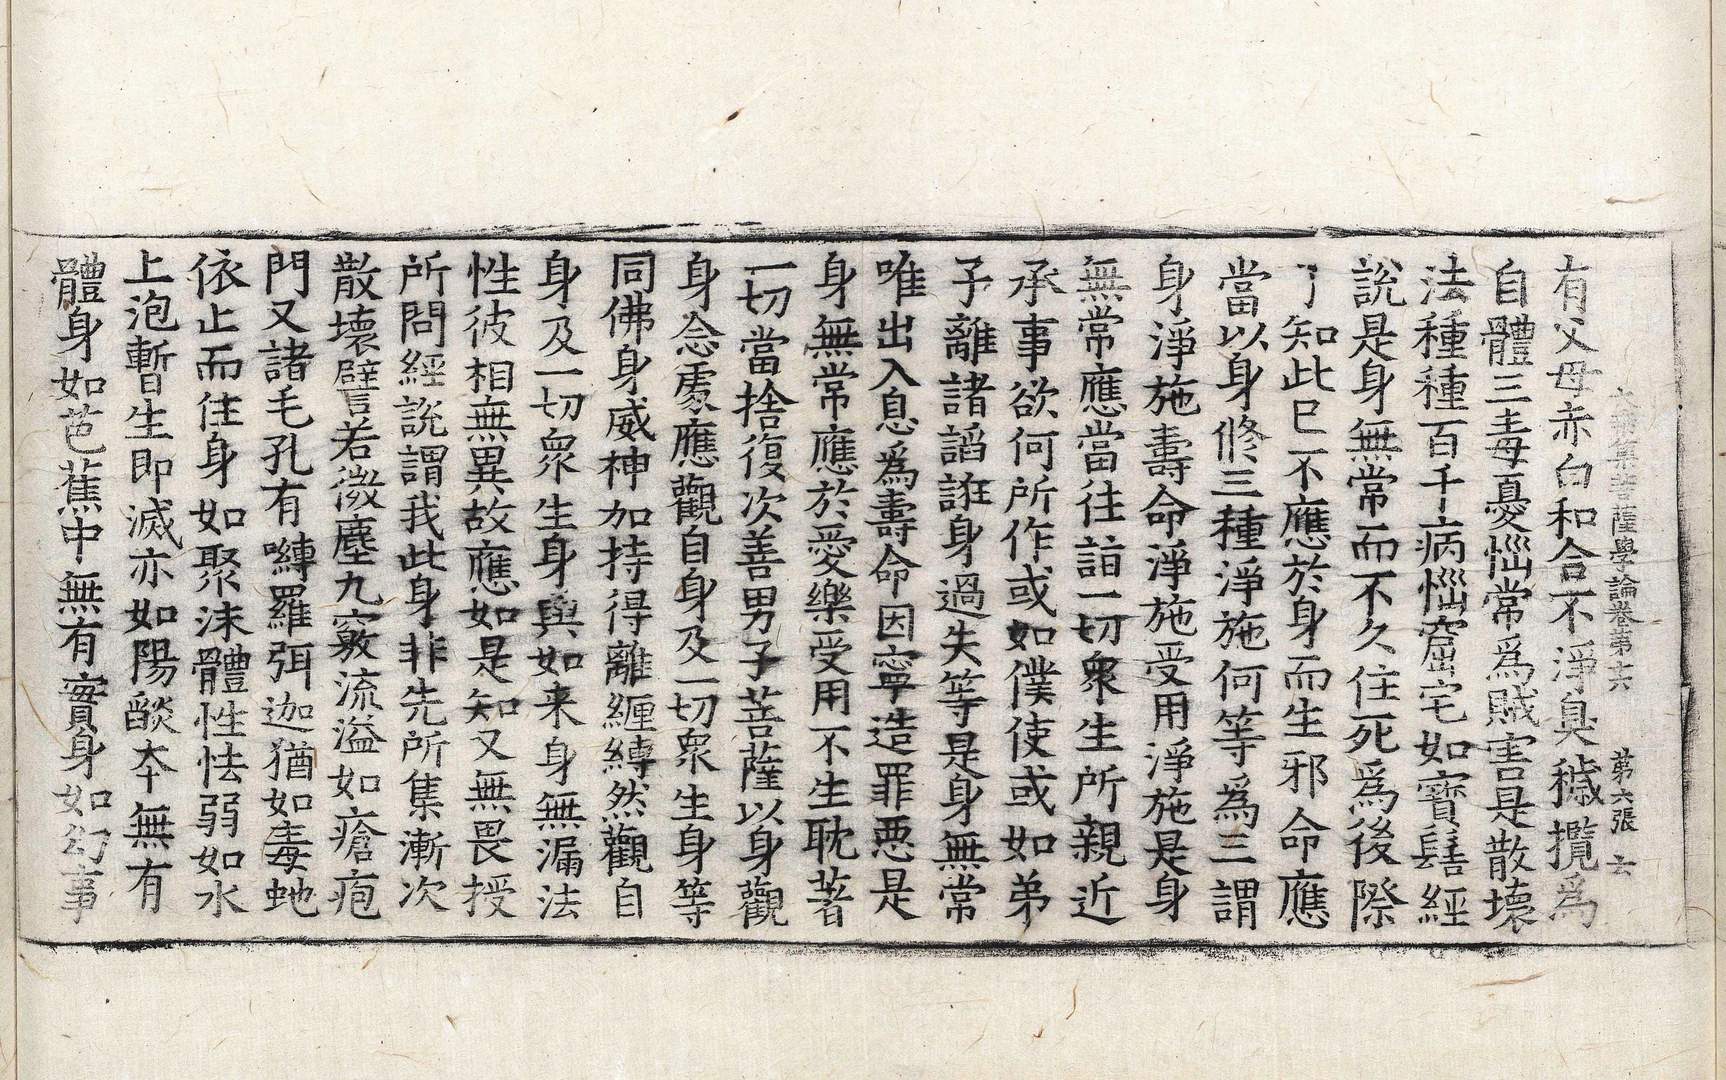 大乘集菩薩學論卷第十六　第六張　云
有父母赤白和合不淨臭穢攬為
自體三毒憂惱常為賊害是散壞
法種種百千病惱窟宅如寶髻經
說是身無常而不久住死為後際
了知此已不應於身而生邪命應
當以身修三種淨施何等為三謂
身淨施壽命淨施受用淨施是身
無常應當往詣一切衆生所親近
承事欲何所作或如僕使或如弟
子離諸謟誑身過失等是身無常
唯出入息為壽命因寧造罪惡是
身無常應於愛樂受用不生耽著
一切當捨復次善男子菩薩以身觀
身念處應觀自身及一切衆生身等
同佛身威神加持得離纏縛然觀自
身及一切衆生身與如来身無漏法
性彼相無異故應如是知又無畏授
所問經說謂我此身非先所集漸次
散壞譬若微塵九竅流溢如瘡疱
門又諸毛孔有嚩羅弭迦猶如毒虵
依止而住身如聚沫體性怯弱如水
上泡暫生即滅亦如陽燄本無有
體身如芭蕉中無有實身如幻事